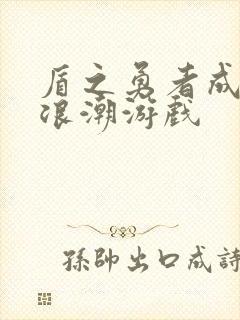 盾之勇者成
浪潮游戏
孫帥出口成詩